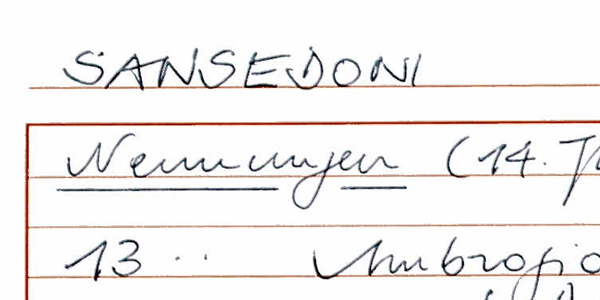 SANSEDONI
Nennungen (14.
13 .. Ambrogio